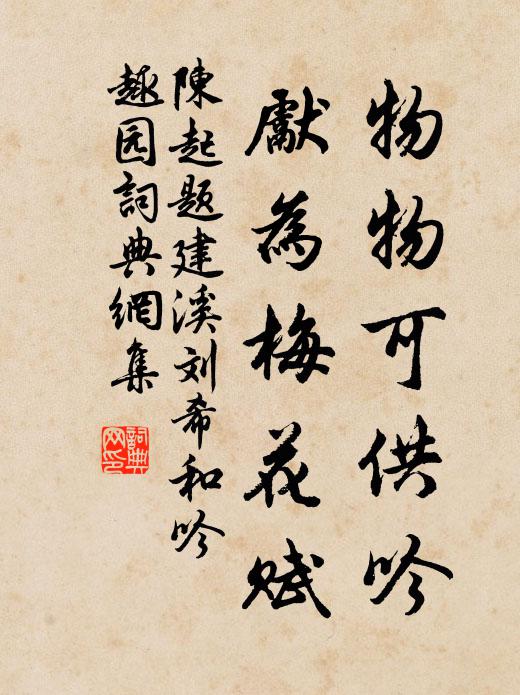 物物可供吟
獻為梅花賦
陳起题建溪刘希和吟
趣园詞典網集
詞典网印